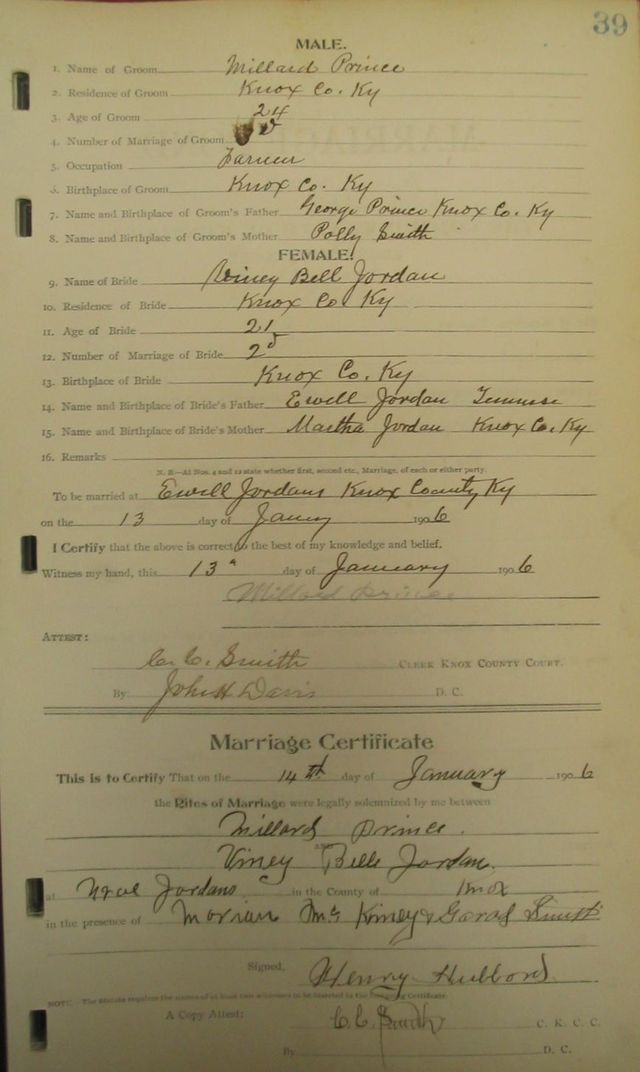 39
MALE.
1. Name of Groom Millard Prince
2. Residence of Groom Knox Co. Ky
3. Age of Groom 24
4. Number of Marriage of Groom
5. Occupation Farmer
6. Birthplace of Groom Knox Co. Ky
7. Name and Birthplace of Groom's Father George Prince Knox Co. Ky
8. Name and Birthplace of Groom's Mother Polly Smith
FEMALE.
9. Name of Bride Viney Bell Jordan
10. Residence of Bride Knox Co Ky
11. Age of Bride 21
12. Number of Marriage of Bride 2d
13. Birthplace of Bride Knox Co. Ky
14. Name and Birthplace of Bride's Father Ewell Jordan
15. Name and Birthplace of Bride's Mother Martha Jordan Knox Co. Ky
16. Remarks
N. B.—At Nos. 4 and 12 state whether first, second etc., Marriage, of each or either party.
To be married at Ewell Jordans Knox County Ky
on the 13 day of 1906
I Certify that the above is correct to the best of my knowledge and belief.
Witness my hand, this 13 day of January 1906
Millard Prince
ATTEST:
C. C. Smith CLERK KNOX COUNTY COURT.
By John H Davis D. C.
Marriage Certificate
This is to Certify That on the 14th day of January 1906
the Rites of Marriage were legally solemnized by me between
Millard Prince.
AND
Viney Bell Jordan.
at Jordans in the County of Knox
in the presence of
Signed, Henry Hubbard
NOTE.—The Statute requires the names of at least two witnesses to be inserted in the foregoing Certificate.
A Copy Attest: C. C. Smith C. K. C. C.
By D. C.